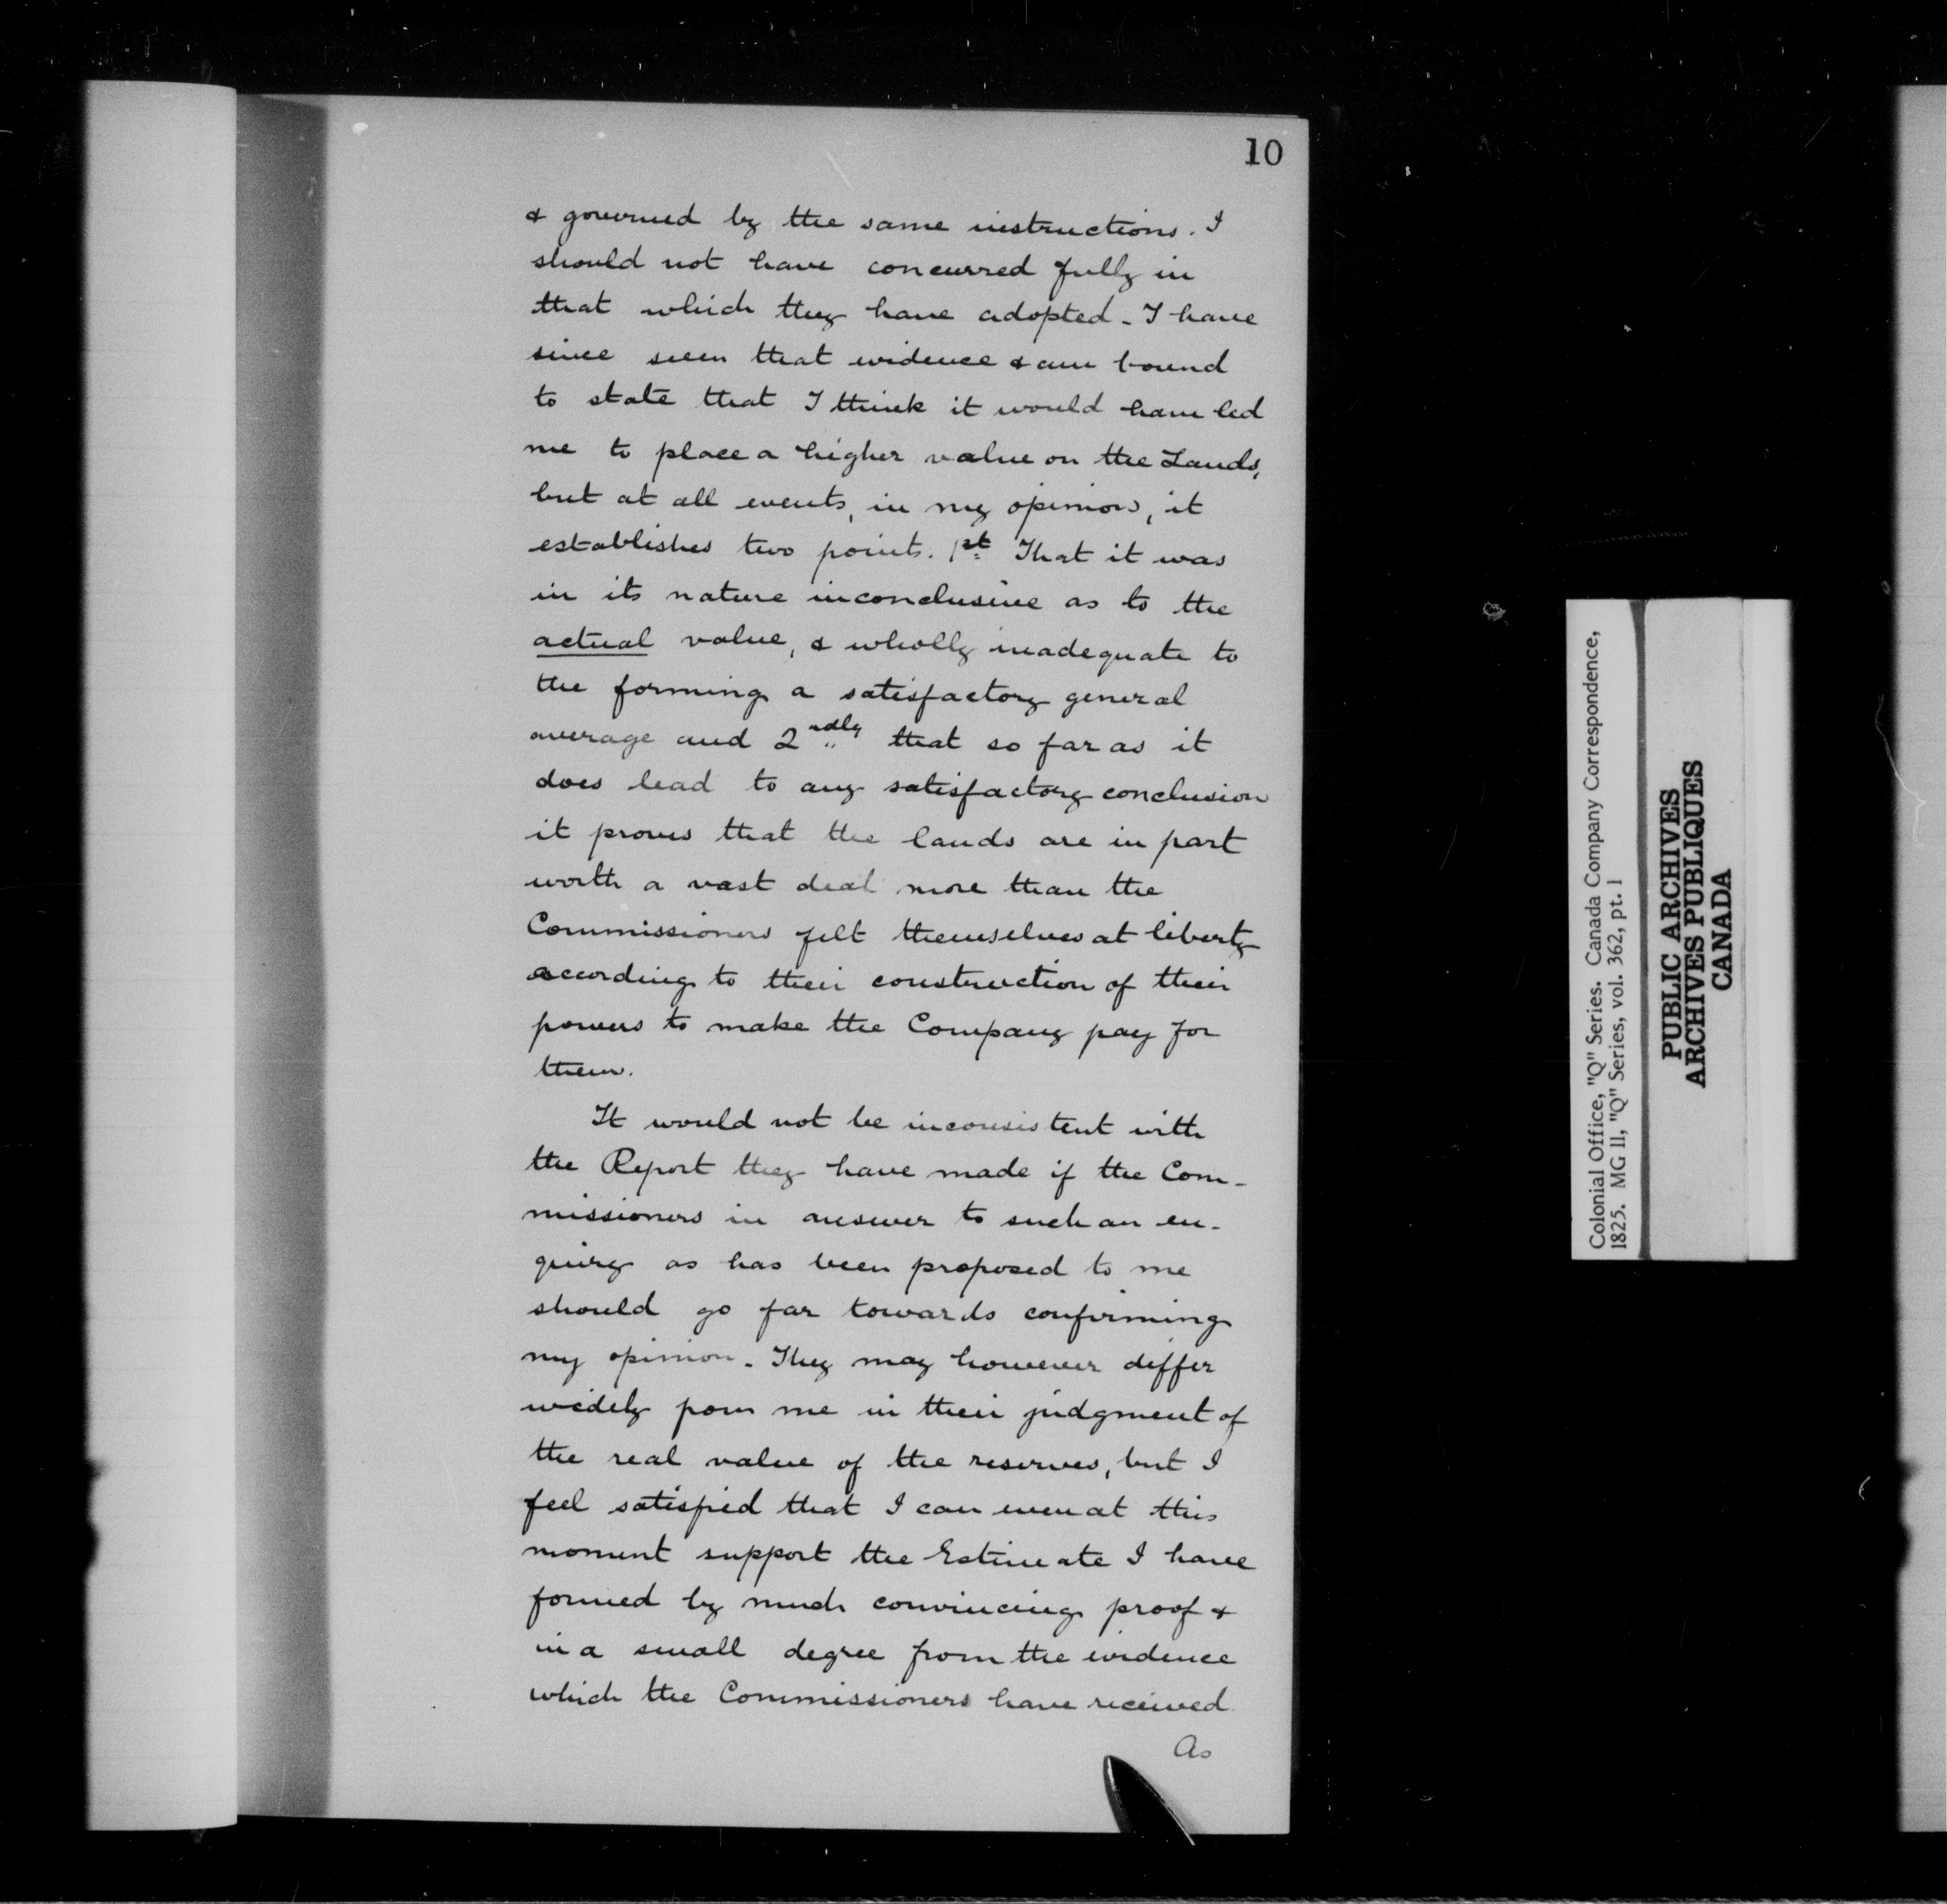 10
& governed by the same instructions. I
should not have concurred fully in
that which they have adopted - I have
since seen that evidence & am bound
to state that I think it would have led
me to place a higher value on the Lands,
but at all events, in my opinion, it
establishes two points. 1st That it was
in its nature inconclusive as to the
actual value, & wholly inadequate to
the forming a satisfactory general
average and 2ndly that so far as it
does lead to any satisfactory conclusion
it proves that the lands are in part
worth a vast deal more than the
Commissioners felt themselves at liberty
according to their construction of their
powers to make the Company pay for
them.
It would not be inconsistent with
the Report they have made if the Com-
missioners in answer to such an en-
quiry as has been proposed to me
should go far towards confirming
my opinion - They may however differ
widely from me in their judgment of
the real value of the reserves, but I
feel satisfied that I can even at this
moment support the Estimate I have
formed by much convincing proof &
in a small degree from the evidence
which the Commissioners have received.
As
Colonial Office, "Q" Series. Canada Company Correspondence,
1825. MG 11, "Q" Series, vol. 362, pt. 1
PUBLIC ARCHIVES
ARCHIVES PUBLIQUES
CANADA